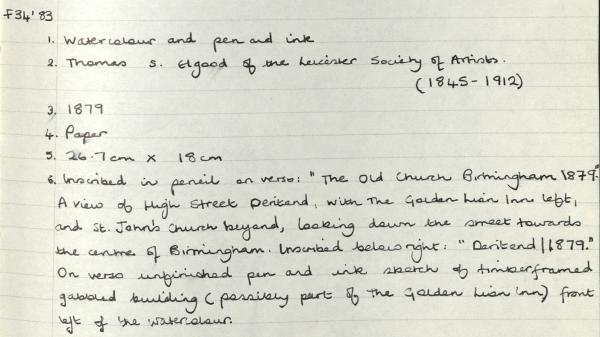 F34'83
1. Watercolour and pen and ink
2. Thomas S. Elgood of the Leicester Society of Artists.
(1845-1912)
3. 1879
4. Paper
5. 26.7cm x 18cm
6. Inscribed in pencil on verso: "The Old Church Birmingham 1879."
A view of High Street Deritend, with The Golden Lion Inn left,
and St. John's Church beyond, looking down the street towards
the centre of Birmingham. Inscribed below right: "Deritend/1879."
On verso unfinished pen and ink sketch of timberframed
gabbled building (possibly part of The Golden Lion Inn) front
left of the watercolour.